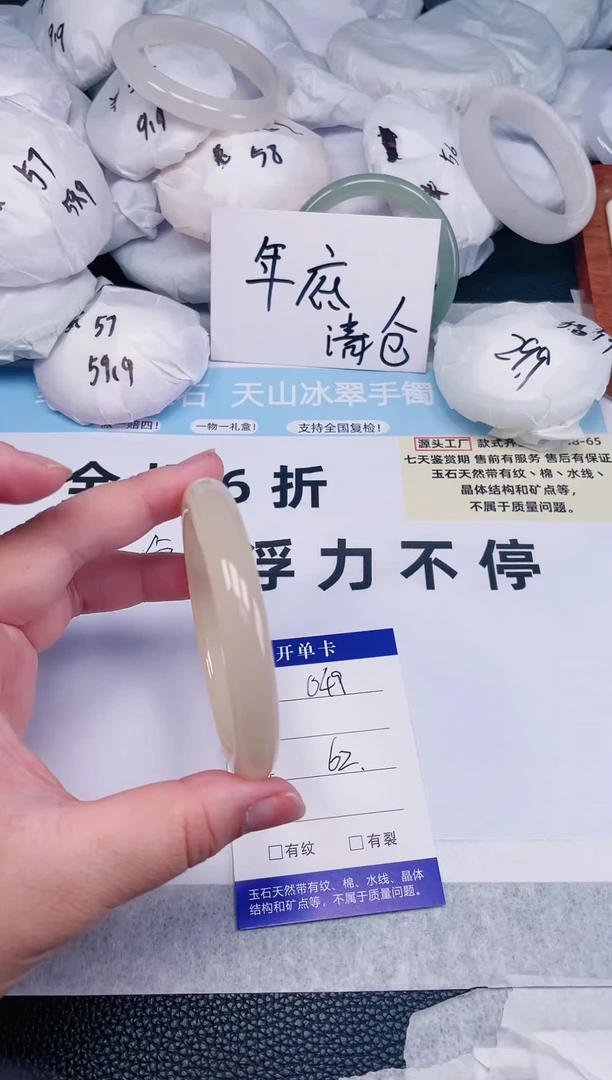 9.9
9.9
58
56
57
59.9
年底
清仓
57
59.9
29.9
石 天山冰翠手镯
一赔四！
一物一礼盒！
支持全国复检！
源头工厂 款式齐 8-65
七天鉴赏期 售前有服务 售后有保证
玉石天然带有纹、棉、水线、
晶体结构和矿点等，
不属于质量问题。
全 6折
浮力不停
开单卡
049
62.
□有纹 □有裂
玉石天然带有纹、棉、水线、晶体
结构和矿点等，不属于质量问题。